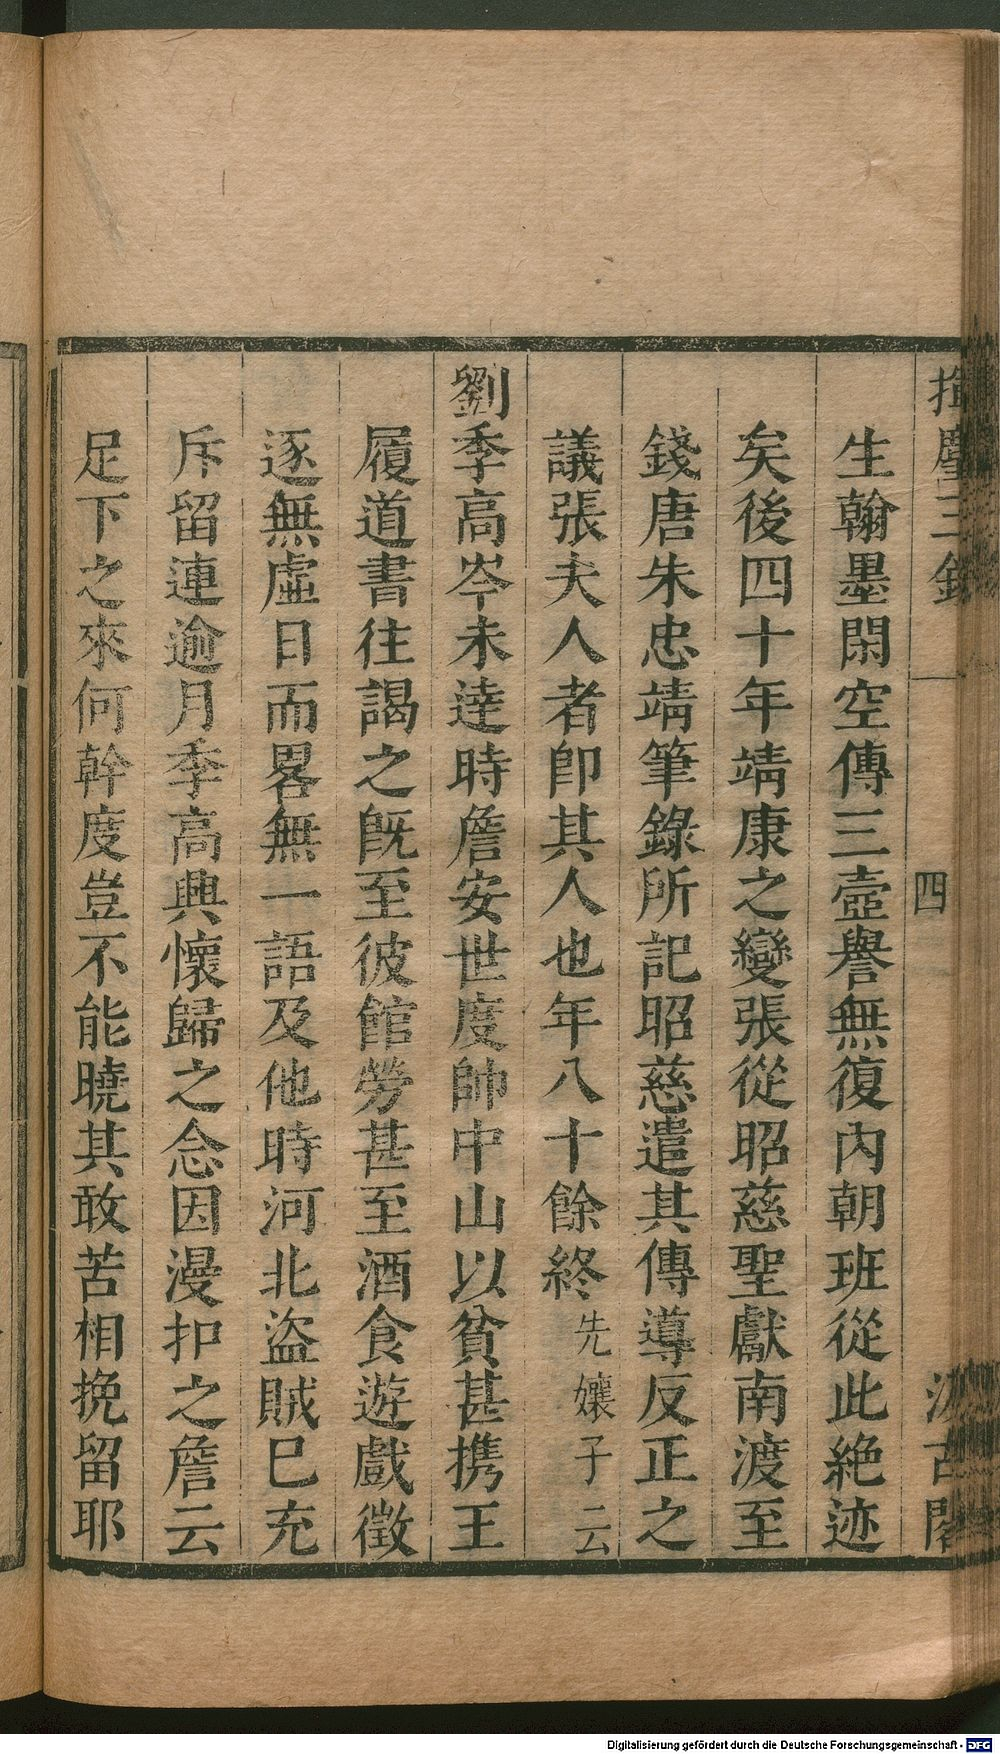 揮麈三錄
四
汲古閣
生翰墨閑空傳三壼譽無復內朝班從此絶迹
矣後四十年靖康之變張從昭慈聖獻南渡至
錢唐朱忠靖筆錄所記昭慈遣其傳導反正之
議張夫人者卽其人也年八十餘終先孃子云
劉季高岑未逹時詹安世度帥中山以貧甚携王
履道書往謁之旣至彼館勞甚至酒食遊戲徵
逐無虛日而畧無一語及他時河北盜賊巳充
斥留連逾月季高興懷歸之念因漫扣之詹云
足下之來何幹度豈不能曉其敢苦相挽留耶
Digitalisierung gefördert durch die Deutsche Forschungsgemeinschaft - DFG